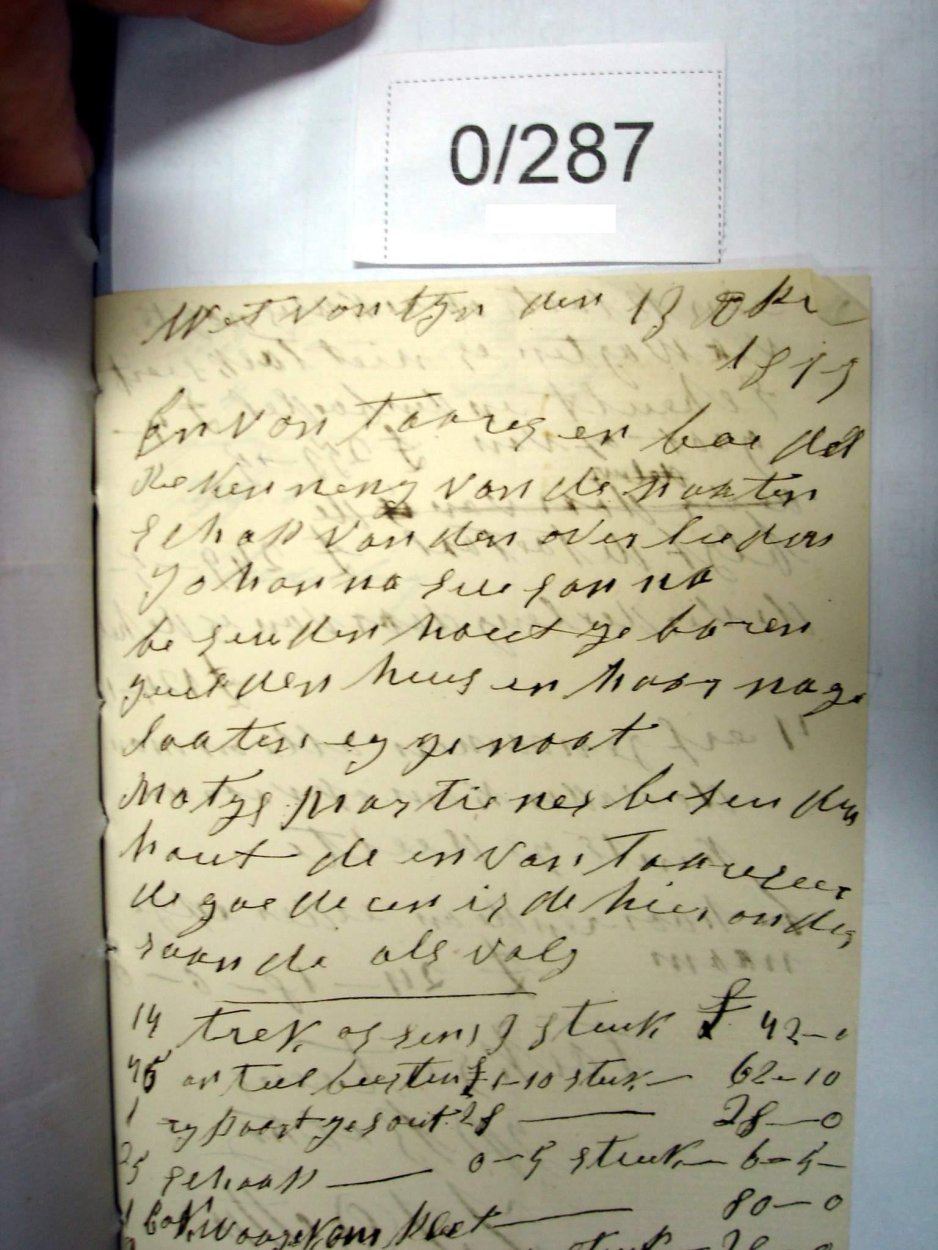 0/287
Wetvontyn den 13 8br
1879
En Von Taares en boe del
Rekenneng van de naaten
schap van den overlieden
Johanna Susanna
beseuden hout ge boren
geelden huis en haar nage
laaten eg ge noot
Matys martienes beseuden
hout de en van Taareseer
de goe de en is de hier onder
staande als volg
14 trek os sens 3 stuk £ 42-0
45 an teel beesten £1-10 stuk 62-10
1 ry paart gesout 28 28-0
25 schaap 0-5 stuk 6-5-
1 bok waage kom pleet 80-0